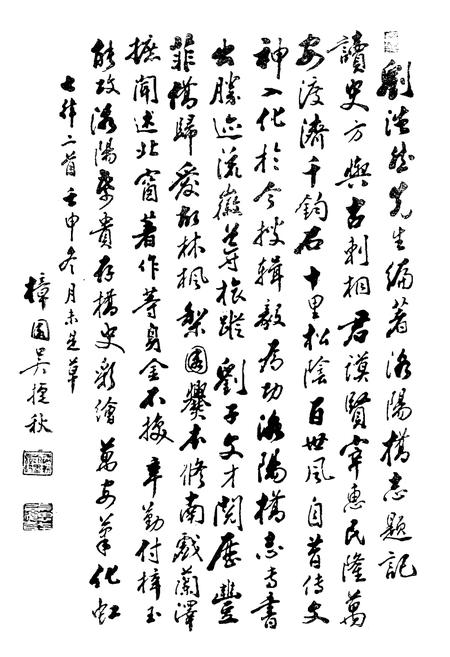 劉浩然先生編著洛陽橋志題記
讀史方輿古刺桐君謨賢宰惠民隆萬
安渡濟千鈞石十里松陰百世風自昔傳文
神入化於今搜輯毅為功洛陽橋志專書
出勝迹流徽導旅蹤劉子文才閱歷豐
菲橋歸愛故林楓梨園爨本修南戲蘭澤
摭聞述北窗著作等身金不換辛勤付梓玉
能攻洛陽紙貴存橋史彩繪萬安筆化虹
七律二首壬申冬月未是草
樟園吳捷秋